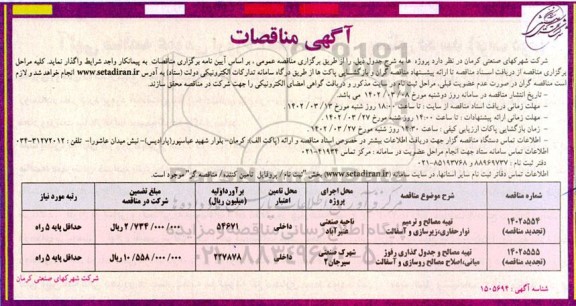 آگهی مناقصات
شرکت شهرکهای صنعتی کرمان در نظر دارد پروژه ها به شرح جدول ذیل را از طریق برگزاری مناقصه عمومی، بر اساس آیین نامه برگزاری مناقصات به پیمانکار واجد شرایط واگذار نماید. کلیه مراحل
برگزاری مناقصه از دریافت اسناد مناقصه تا ارائه پیشنهاد مناقصه گران و بازگشایی پاکت ها از طریق درگاه سامانه تدارکات الکترونیکی دولت (ستاد) به آدرس www.setadiran.ir انجام خواهد شد و لازم
است مناقصه گران در صورت عدم عضویت قبلی، مراحل ثبت نام در سایت مذکور و دریافت گواهی امضای الکترونیکی را جهت شرکت در مناقصه محقق سازند.
- تاریخ انتشار مناقصه در سامانه روز دوشنبه مورخ ۱۴۰۲/۰۳/۰۸ می باشد
- مهلت زمانی دریافت اسناد مناقصه از سایت : تا ساعت ۱۸:۰۰ روز شنبه مورخ ۱۴۰۲/۰۳/۱۳
- مهلت زمانی ارائه پیشنهادات : تا ساعت ۱۴:۰۰ روز شنبه مورخ ۱۴۰۲/۰۳/۲۷
- زمان بازگشایی پاکات ارزیابی کیفی : ساعت ۱۴:۳۰ روز شنبه مورخ ۱۴۰۲/۰۳/۲۷
- اطلاعات تماس دستگاه مناقصه گزار جهت دریافت اطلاعات بیشتر در خصوص اسناد مناقصه و ارائه (پاکت الف): کرمان- بلوار شهید عباسپور(پارادیس)- نبش میدان عاشورا- تلفن : ۰۳۴-۳۱۲۷۲۰۱۲
- اطلاعات تماس سامانه ستاد جهت انجام مراحل عضویت در سامانه : مرکز تماس ۴۱۹۳۴-۰۲۱
دفتر ثبت نام : ۸۸۹۶۹۷۳۷ و ۸۵۱۹۳۷۶۸-۰۲۱
- اطلاعات تماس دفاتر ثبت نام سایر استانها، در سایت سامانه (www.setadiran.ir) بخش "ثبت نام / پروفایل تامین کننده/ مناقصه گر" موجود است.
شماره مناقصه شرح موضوع مناقصه محل اجرای پروژه محل تامین اعتبار برآورداولیه (میلیون ریال) مبلغ تضمین شرکت در مناقصه رتبه مورد نیاز
۱۴۰۲۵۵۴ (تجدید مناقصه) تهیه مصالح و ترمیم نوارحفاری،زیرسازی و آسفالت ناحیه صنعتی عنبرآباد داخلی ۵۴۶۷۱ ۲/۷۳۴/۰۰۰/۰۰۰ ریال حداقل پایه ۵ راه
۱۴۰۲۵۵۵ (تجدید مناقصه) تهیه مصالح و جدول گذاری رفوژ میانی،اصلاح مصالح روسازی و آسفالت شهرک صنعتی سیرجان۲ داخلی ۲۲۷۸۷۸ ۱۰/۵۵۸/۰۰۰/۰۰۰ ریال حداقل پایه ۵ راه
شناسه آگهی : ۱۵۰۵۶۹۴
شرکت شهرکهای صنعتی کرمان